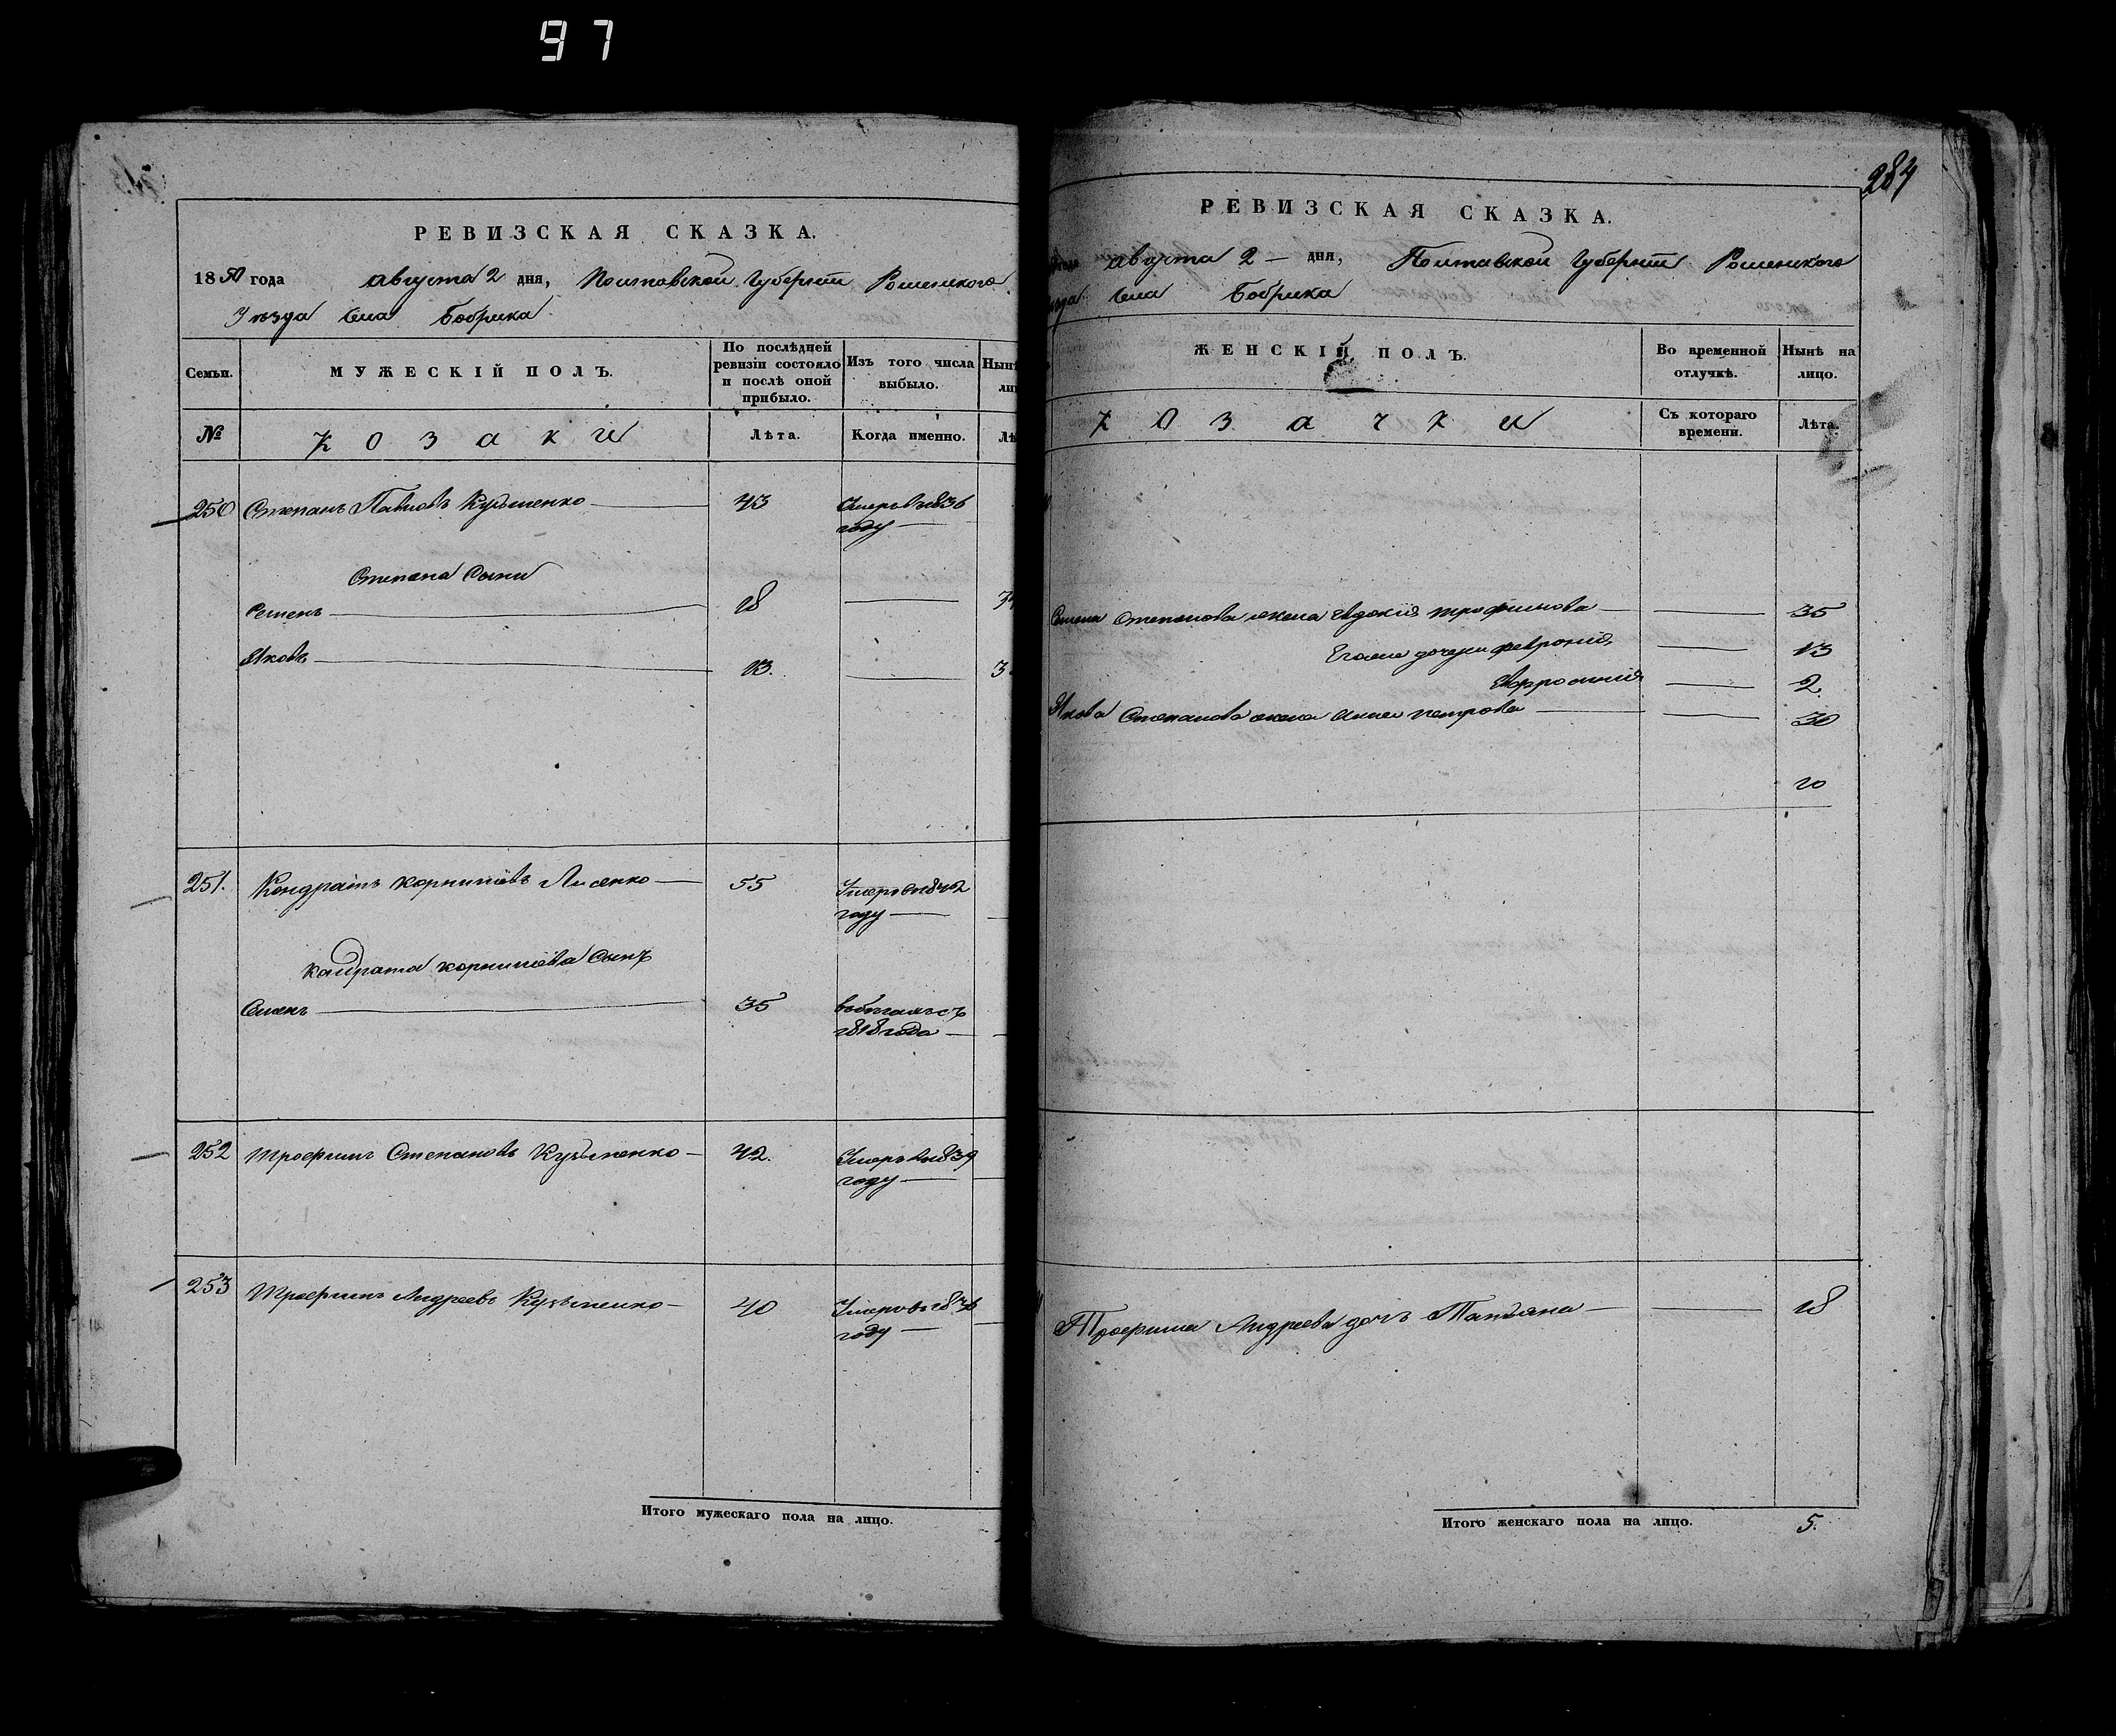 97
РЕВИЗСКАЯ СКАЗКА.
1850 года августа 2 дня, Полтавской Губернии Роменского
Уезда Села Бобрика
Семьи. МУЖЕСКІЙ ПОЛЪ. По послѣдней ревизіи состояло и послѣ оной прибыло. Изъ того числа выбыло. Нынѣ
№ Козаки Лѣта. Когда именно. Лѣ
250 Степанъ Павловъ Кузьменко 43 Умеръ в 1836
году
Степана Сыны
Семенъ 18
Яковъ 13.
251. Кондратъ Корниліевъ Лисенко 55 Умеръ в 1842
году
Кондрата Корниліева Сынъ
Семенъ 35 въ бѣгахъ съ
1818 года
252 Трофимъ Степановъ Кузьменко 42. Умеръ в 1839
году
253 Трофимъ Андреевъ Кузьменко 40 Умеръ в
году
Итого мужескаго пола на лицо.
284
РЕВИЗСКАЯ СКАЗКА.
августа 2 дня, Полтавской Губернии Роменского
Села Бобрика
ЖЕНСКІЙ ПОЛЪ. Во временной отлучкѣ. Нынѣ на лицо.
Козачки Съ котораго времени. Лѣта.
Семена Степанова жена Евдокия Трофимова 35
Его же дочери Феврония, 13
Евфросиния 2
Якова Степанова жена Анна Петрова 30
Трофима Андреева дочь Татьяна 18
Итого женскаго пола на лицо. 5.